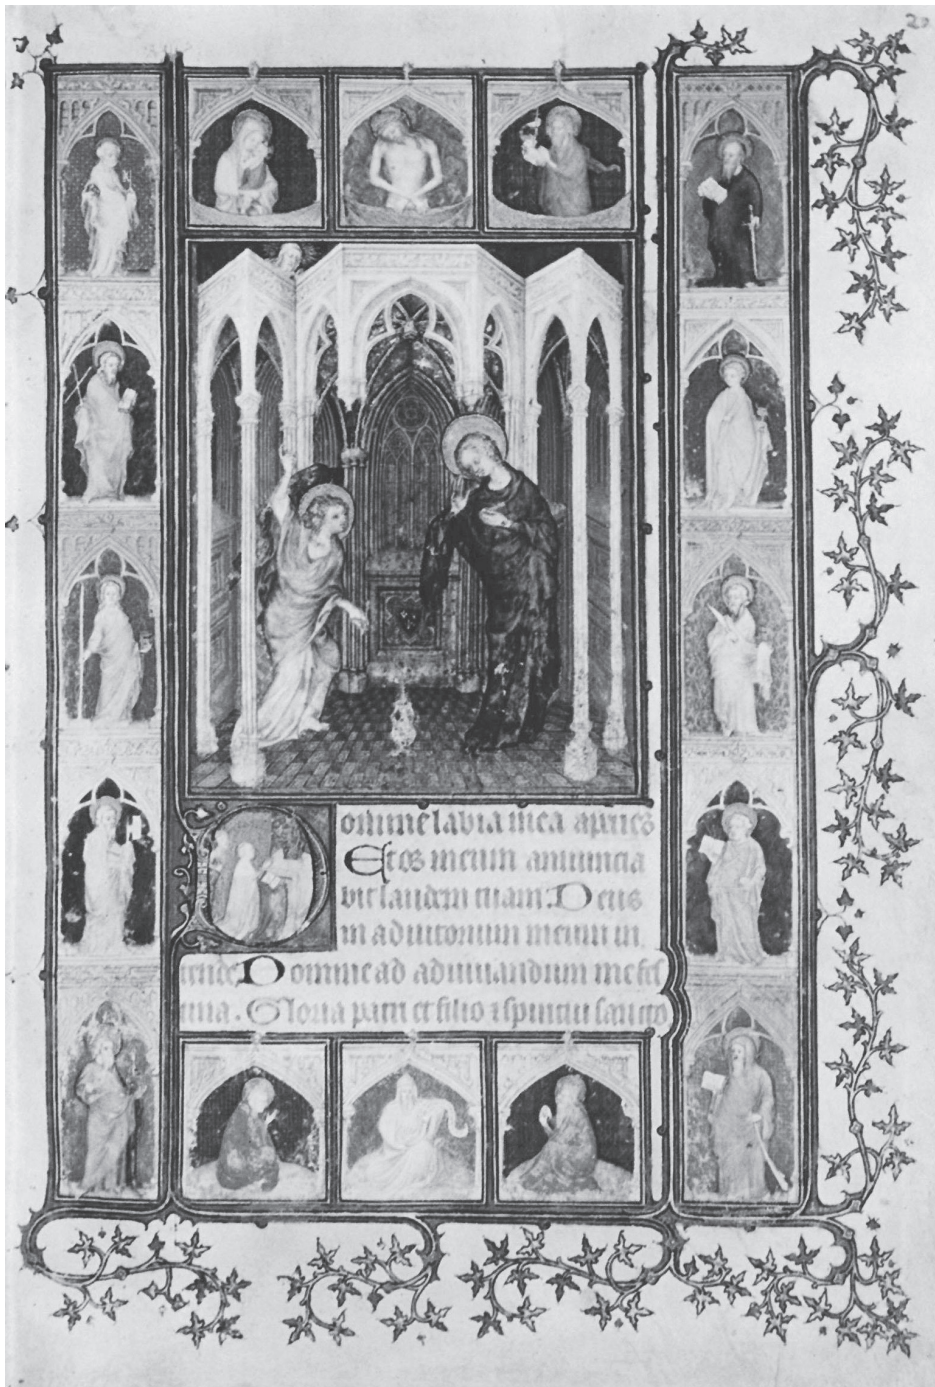 20
omine labia mea aperies
Et os meum anuncia
bit laudem tuam. Deus
in adiutorium meum in
tende Domine ad adiuuandum me fes
tina. Gloria patri et filio et spiritui sancto